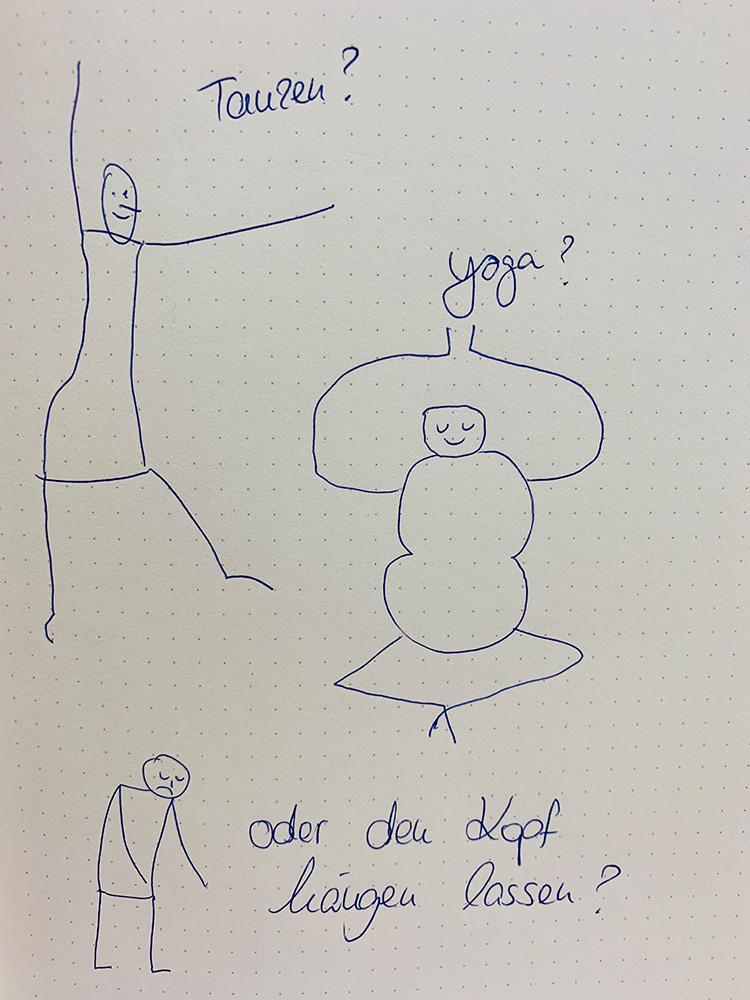 Tanzen?
Yoga?
oder den Kopf
hängen lassen?